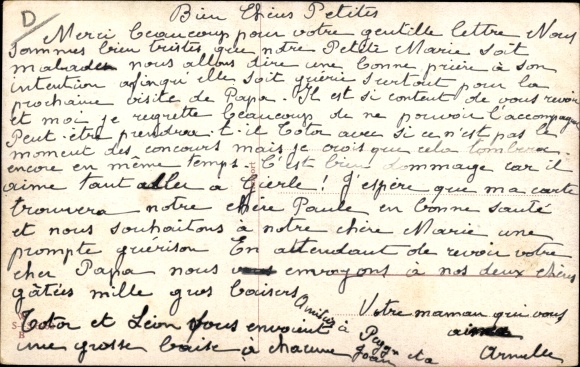 D
Bien Chères Petites
Merci beaucoup pour votre gentille lettre Nous
sommes bien tristes que notre Petite Marie soit
malade nous allons dire une bonne prière à son
intention afin qu'elle soit guérie surtout pour la
prochaine visite de Papa. Il est si content de vous revoir
et moi je regrette beaucoup de ne pouvoir l'accompagner
Peut-être prendra-t-il Totor avec si ce n'est pas le
moment des concours mais je crois que cela tombera
encore en même temps. C'est bien dommage car il
aime tant aller à Gierle! J'espère que ma carte
trouvera notre chère Paule en bonne santé
et nous souhaitons à notre chère Marie une
prompte guérison En attendant de revoir votre
cher Papa nous vous envoyons à nos deux chères
gâtées mille gros baisers
Votre maman qui vous
Totor et Léon vous envoient à aime
une grosse baise à chacune Armelle